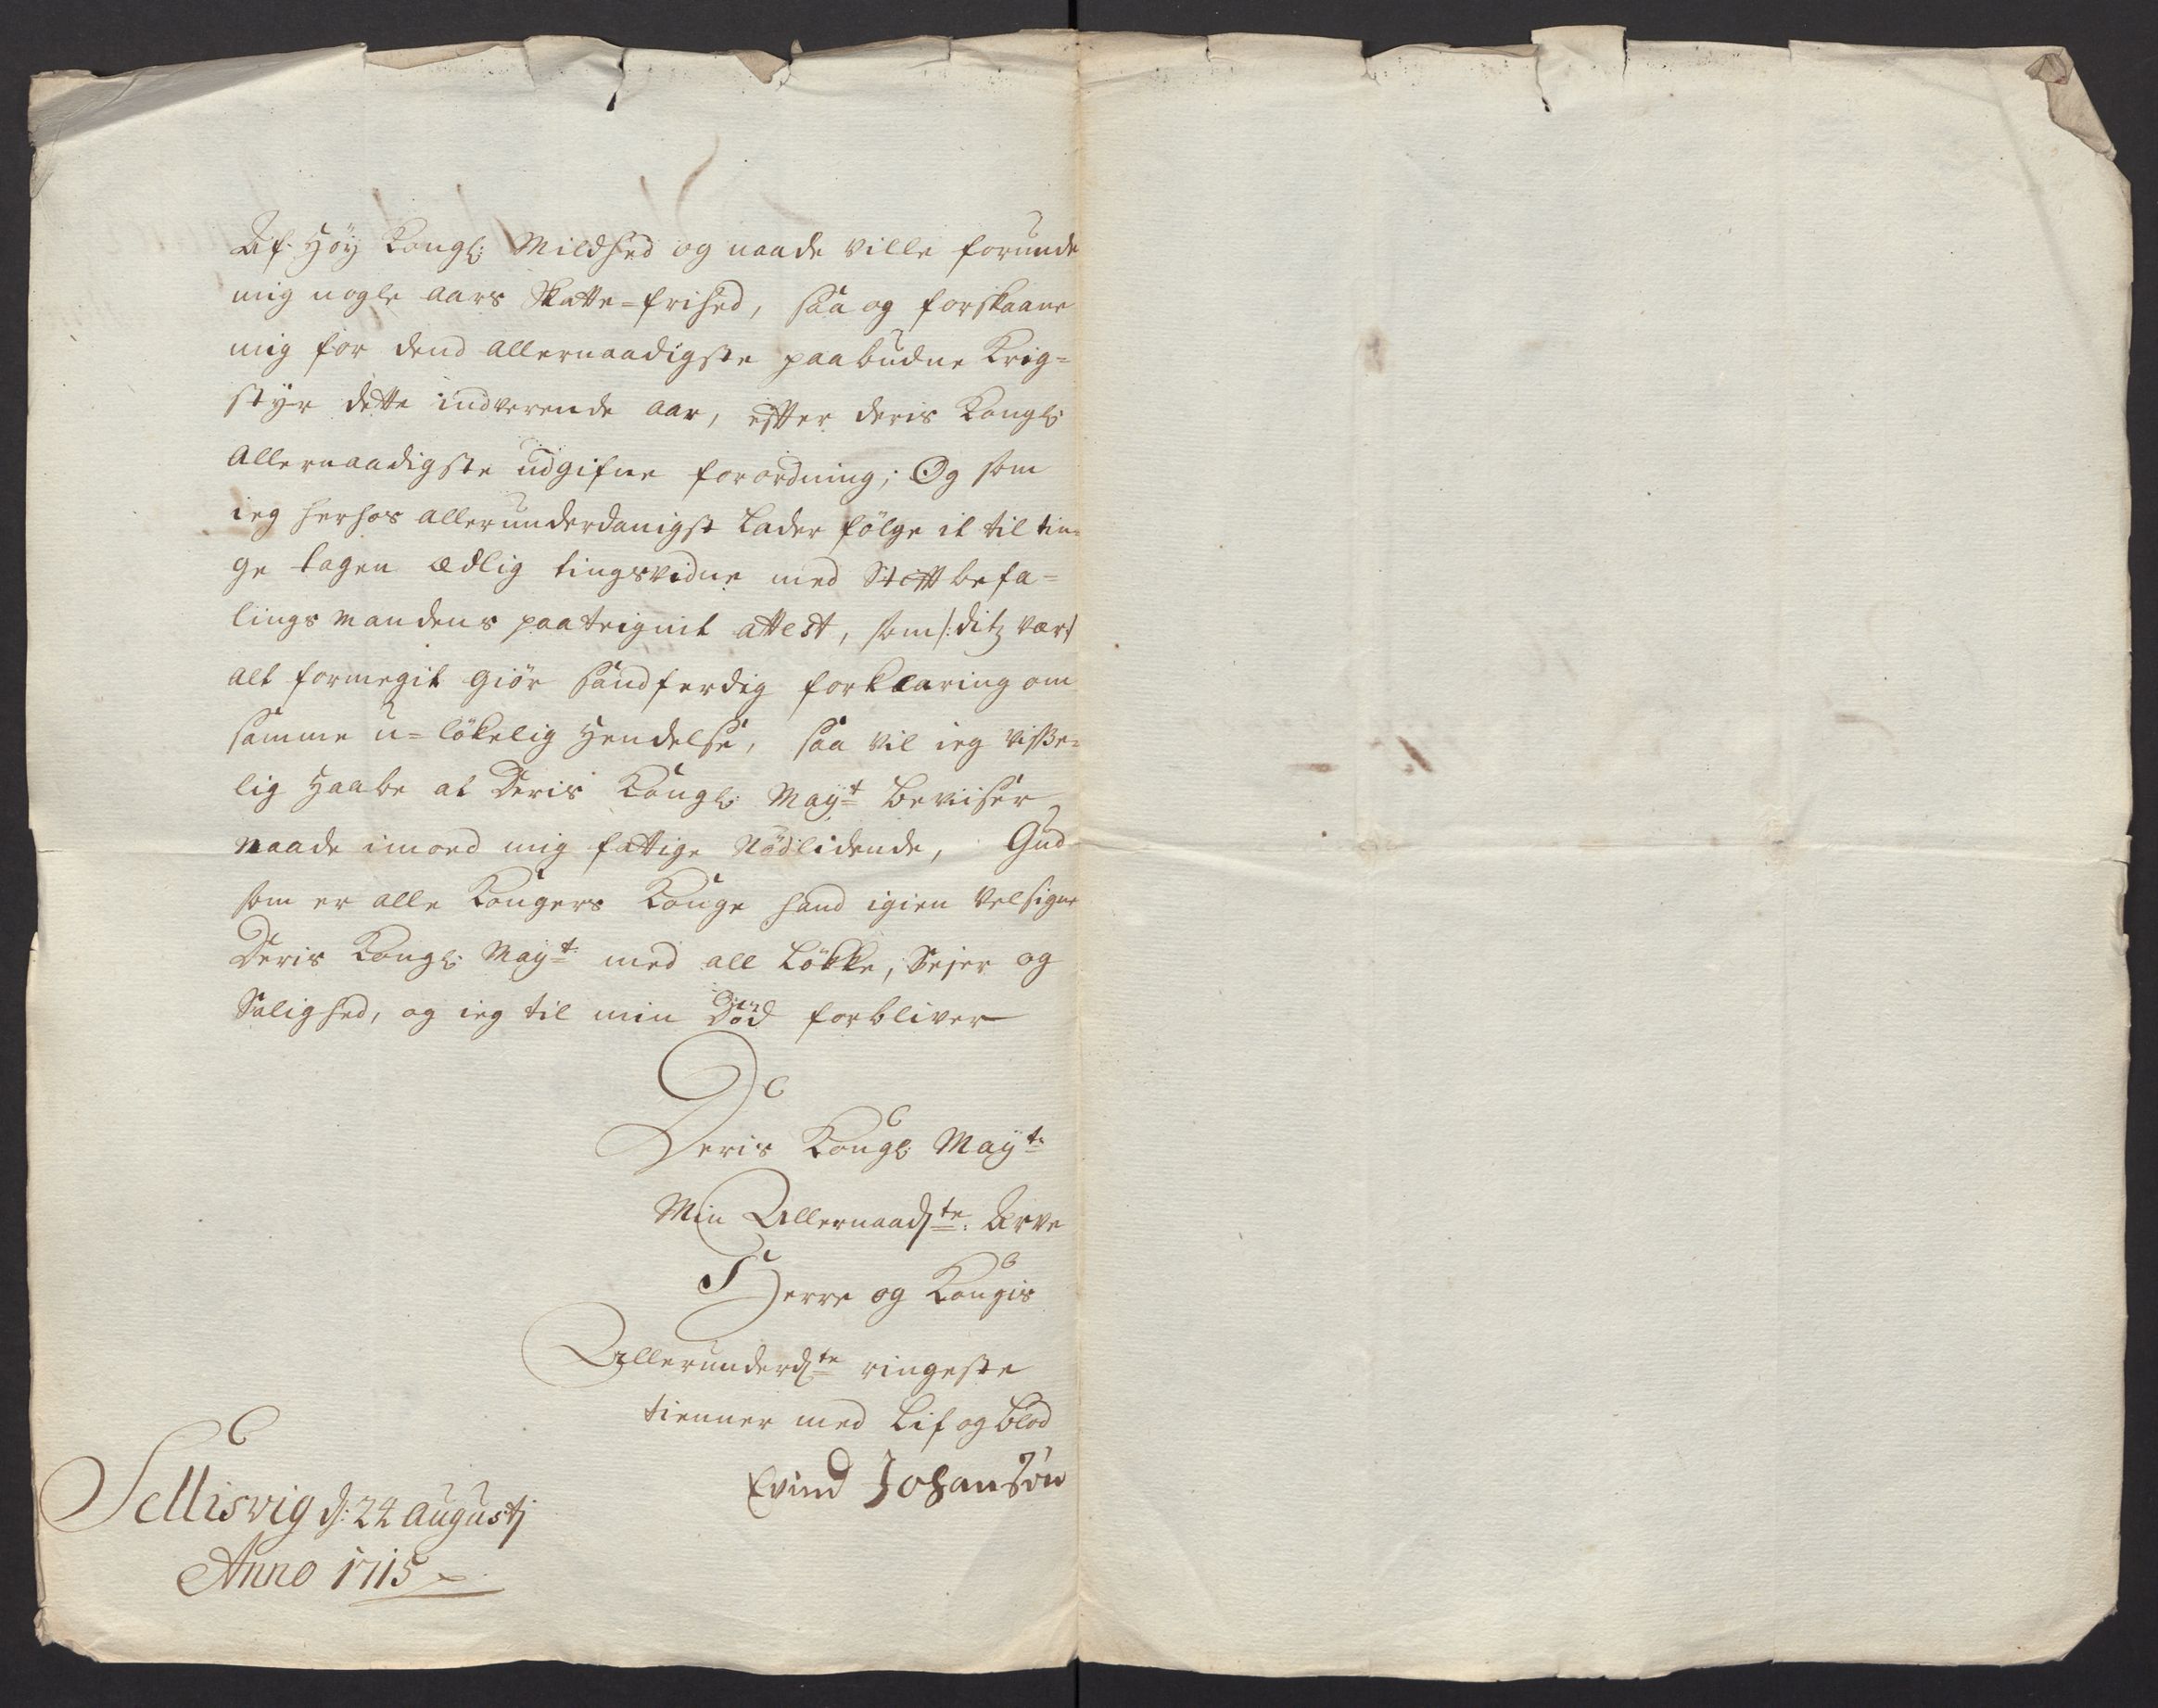 Af Høy Kongl: Mildhed og naade ville forunde
mig nogle aars Skatte=frihed, saa og forskaane
mig for dend allernaadigste paabudne Krig=
styr dette indverende aar, efter deris Kongl:
allernaadigste udgifne forordning; Og som
ieg herhos allerunderdanigst lader følge it til tin=
ge tagen ædlig tingsvidne med Stiftbefa=
lingsmandens paateignit attest, som /: ditz vær /
alt formegit giør sandferdig forklaring om
samme u=lökelig Hendelse, saa vil ieg visse=
lig Haabe at Deris Kongl: Mayt beviser
Naade imod mig fattige Nödlidende, Gud
som er alle Kongers Konge hand igien velsigne
Deris Kongl: Mayt: med all Lökke, Sejer og
Salighed, og ieg til min Död forbliver
Deris Kongl: Mayts
Min Allernaadste: Arve
Herre og Kongis
Allerunderdte ringeste
tienner med Lif og blod
Evind Johansøn
Sellisvig d: 24 Augustj
Anno 1715